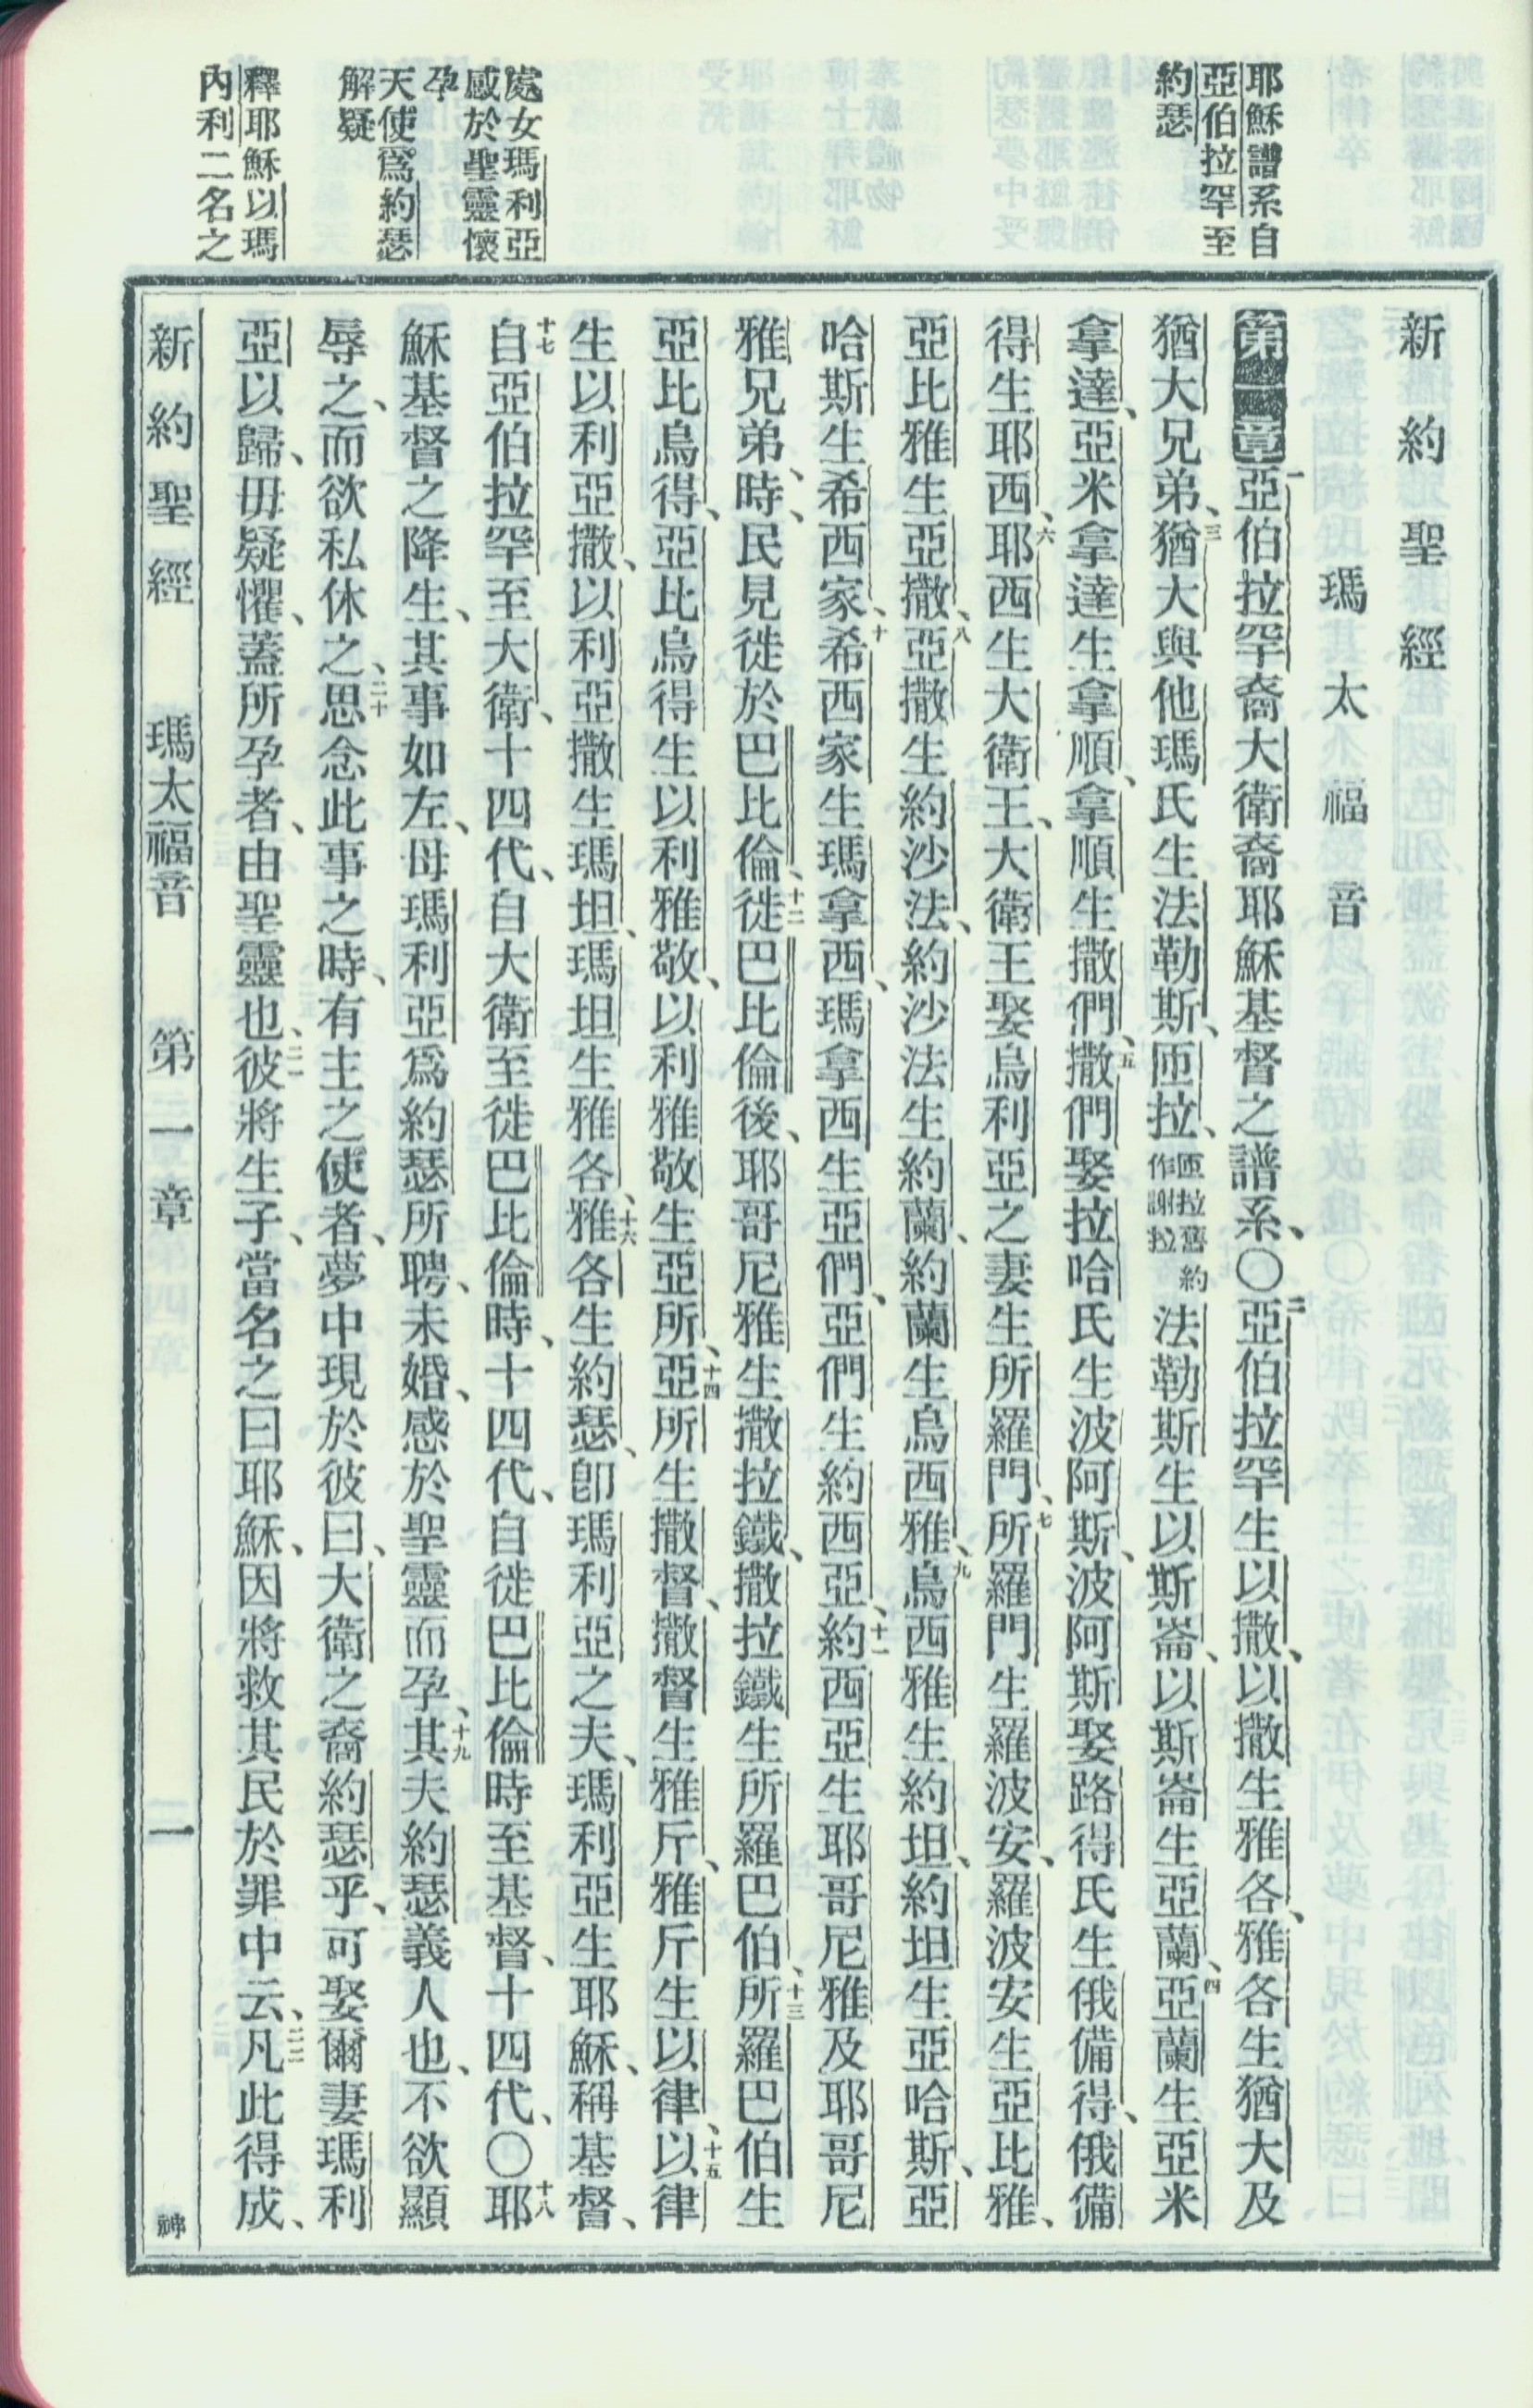 耶穌譜系自
亞伯拉罕至
約瑟
處女瑪利亞
感於聖靈懷
孕
天使爲約瑟
解疑
釋耶穌以瑪
內利二名之
新約聖經
瑪太福音
第一章一亞伯拉罕裔大衛裔耶穌基督之譜系、〇二亞伯拉罕生以撒、以撒生雅各、雅各生猶大及
猶大兄弟、三猶大與他瑪氏生法勒斯、匝拉、匝拉舊約作謝拉法勒斯生以斯崙、以斯崙生亞蘭、四亞蘭生亞米
拿達、亞米拿達生拿順、拿順生撒們、五撒們娶拉哈氏生波阿斯、波阿斯娶路得氏生俄備得、俄備
得生耶西、六耶西生大衛王、大衛王娶烏利亞之妻生所羅門、七所羅門生羅波安、羅波安生亞比雅、
亞比雅生亞撒、八亞撒生約沙法、約沙法生約蘭、約蘭生烏西雅、九烏西雅生約坦、約坦生亞哈斯、亞
哈斯生希西家、十希西家生瑪拿西、瑪拿西生亞們、亞們生約西亞、十一約西亞生耶哥尼雅及耶哥尼
雅兄弟、時、民見徙於巴比倫、十二徙巴比倫後、耶哥尼雅生撒拉鐵、撒拉鐵生所羅巴伯、十三所羅巴伯生
亞比烏得、亞比烏得生以利雅敬、以利雅敬生亞所、十四亞所生撒督、撒督生雅斤、雅斤生以律、十五以律
生以利亞撒、以利亞撒生瑪坦、瑪坦生雅各、十六雅各生約瑟、卽瑪利亞之夫、瑪利亞生耶穌、稱基督、
十七自亞伯拉罕至大衛、十四代、自大衛至徙巴比倫時、十四代、自徙巴比倫時至基督、十四代、〇十八耶
穌基督之降生、其事如左、母瑪利亞爲約瑟所聘、未婚、感於聖靈而孕、十九其夫約瑟義人也、不欲顯
辱之、而欲私休之、二十思念此事之時、有主之使者、夢中現於彼曰、大衛之裔約瑟乎、可娶爾妻瑪利
亞以歸、毋疑懼、蓋所孕者、由聖靈也、二一彼將生子、當名之曰耶穌、因將救其民於罪中云、二二凡此得成、
新約聖經 瑪太福音 第一章 一 神